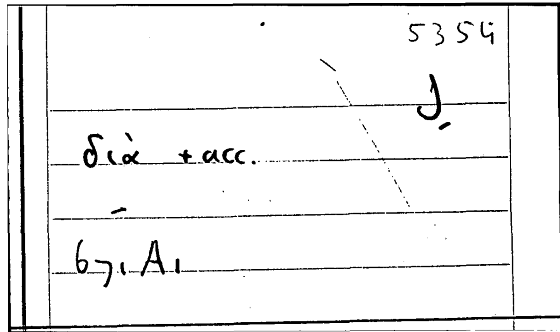 5354
لِ
διὰ +acc.
67,1 A1